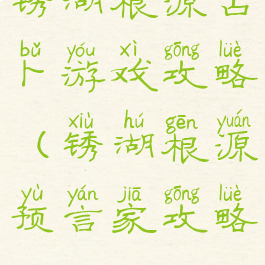 锈湖根源占
bǔ yóu xì gōng lüè
卜游戏攻略
xiù hú gēn yuán
（锈湖根源
yù yán jiā gōng lüè
预言家攻略